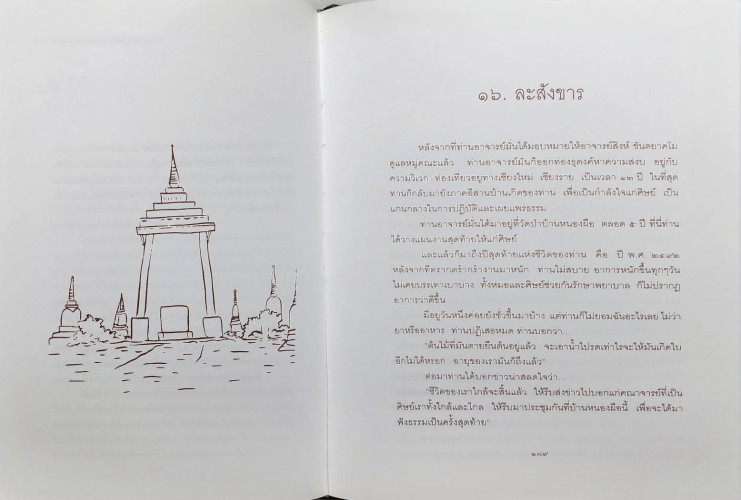 ๑๖. ละสังขาร
หลังจากที่ท่านอาจารย์มั่นได้มอบหมายให้อาจารย์สิงห์ ขันตยาคโม
ดูแลหมู่คณะแล้ว ท่านอาจารย์มั่นก็ออกท่องธุดงค์หาความสงบ อยู่กับ
ความวิเวก ท่องเที่ยวอยู่ทางเชียงใหม่ เชียงราย เป็นเวลา ๑๒ ปี ในที่สุด
ท่านก็กลับมายังภาคอีสานบ้านเกิดของท่าน เพื่อเป็นกำลังใจแก่ศิษย์ เป็น
แกนกลางในการปฏิบัติและเผยแพร่ธรรม
ท่านอาจารย์มั่นได้มาอยู่ที่วัดป่าบ้านหนองผือ ตลอด ๕ ปี ที่นี่ท่าน
ได้วางแผนงานสุดท้ายให้แก่ศิษย์
และแล้วก็มาถึงปีสุดท้ายแห่งชีวิตของท่าน คือ ปี พ.ศ. ๒๔๙๒
หลังจากที่ตรากตรำกร้างานมาหนัก ท่านไม่สบาย อาการหนักขึ้นทุกๆวัน
ไม่เคยบรรเทาเบาบาง ทั้งหมอและศิษย์ช่วยกันรักษาพยาบาล ก็ไม่ปรากฏ
อาการว่าดีขึ้น
มีอยู่วันหนึ่งค่อยยังชั่วขึ้นมาบ้าง แต่ท่านก็ไม่ยอมฉันอะไรเลย ไม่ว่า
ยาหรืออาหาร ท่านปฏิเสธหมด ท่านบอกว่า...
"ต้นไม้ที่มันตายยืนต้นอยู่แล้ว จะเอาน้ำไปรดเท่าไรจะให้มันเกิดใบ
อีกไม่ได้หรอก อายุของเรามันก็ถึงแล้ว"
ต่อมาท่านได้บอกข่าวน่าสลดใจว่า...
"ชีวิตของเราใกล้จะสิ้นแล้ว ให้รีบส่งข่าวไปบอกแก่คณาจารย์ที่เป็น
ศิษย์เราทั้งใกล้และไกล ให้รีบมาประชุมกันที่บ้านหนองผือนี้ เพื่อจะได้มา
ฟังธรรมเป็นครั้งสุดท้าย"